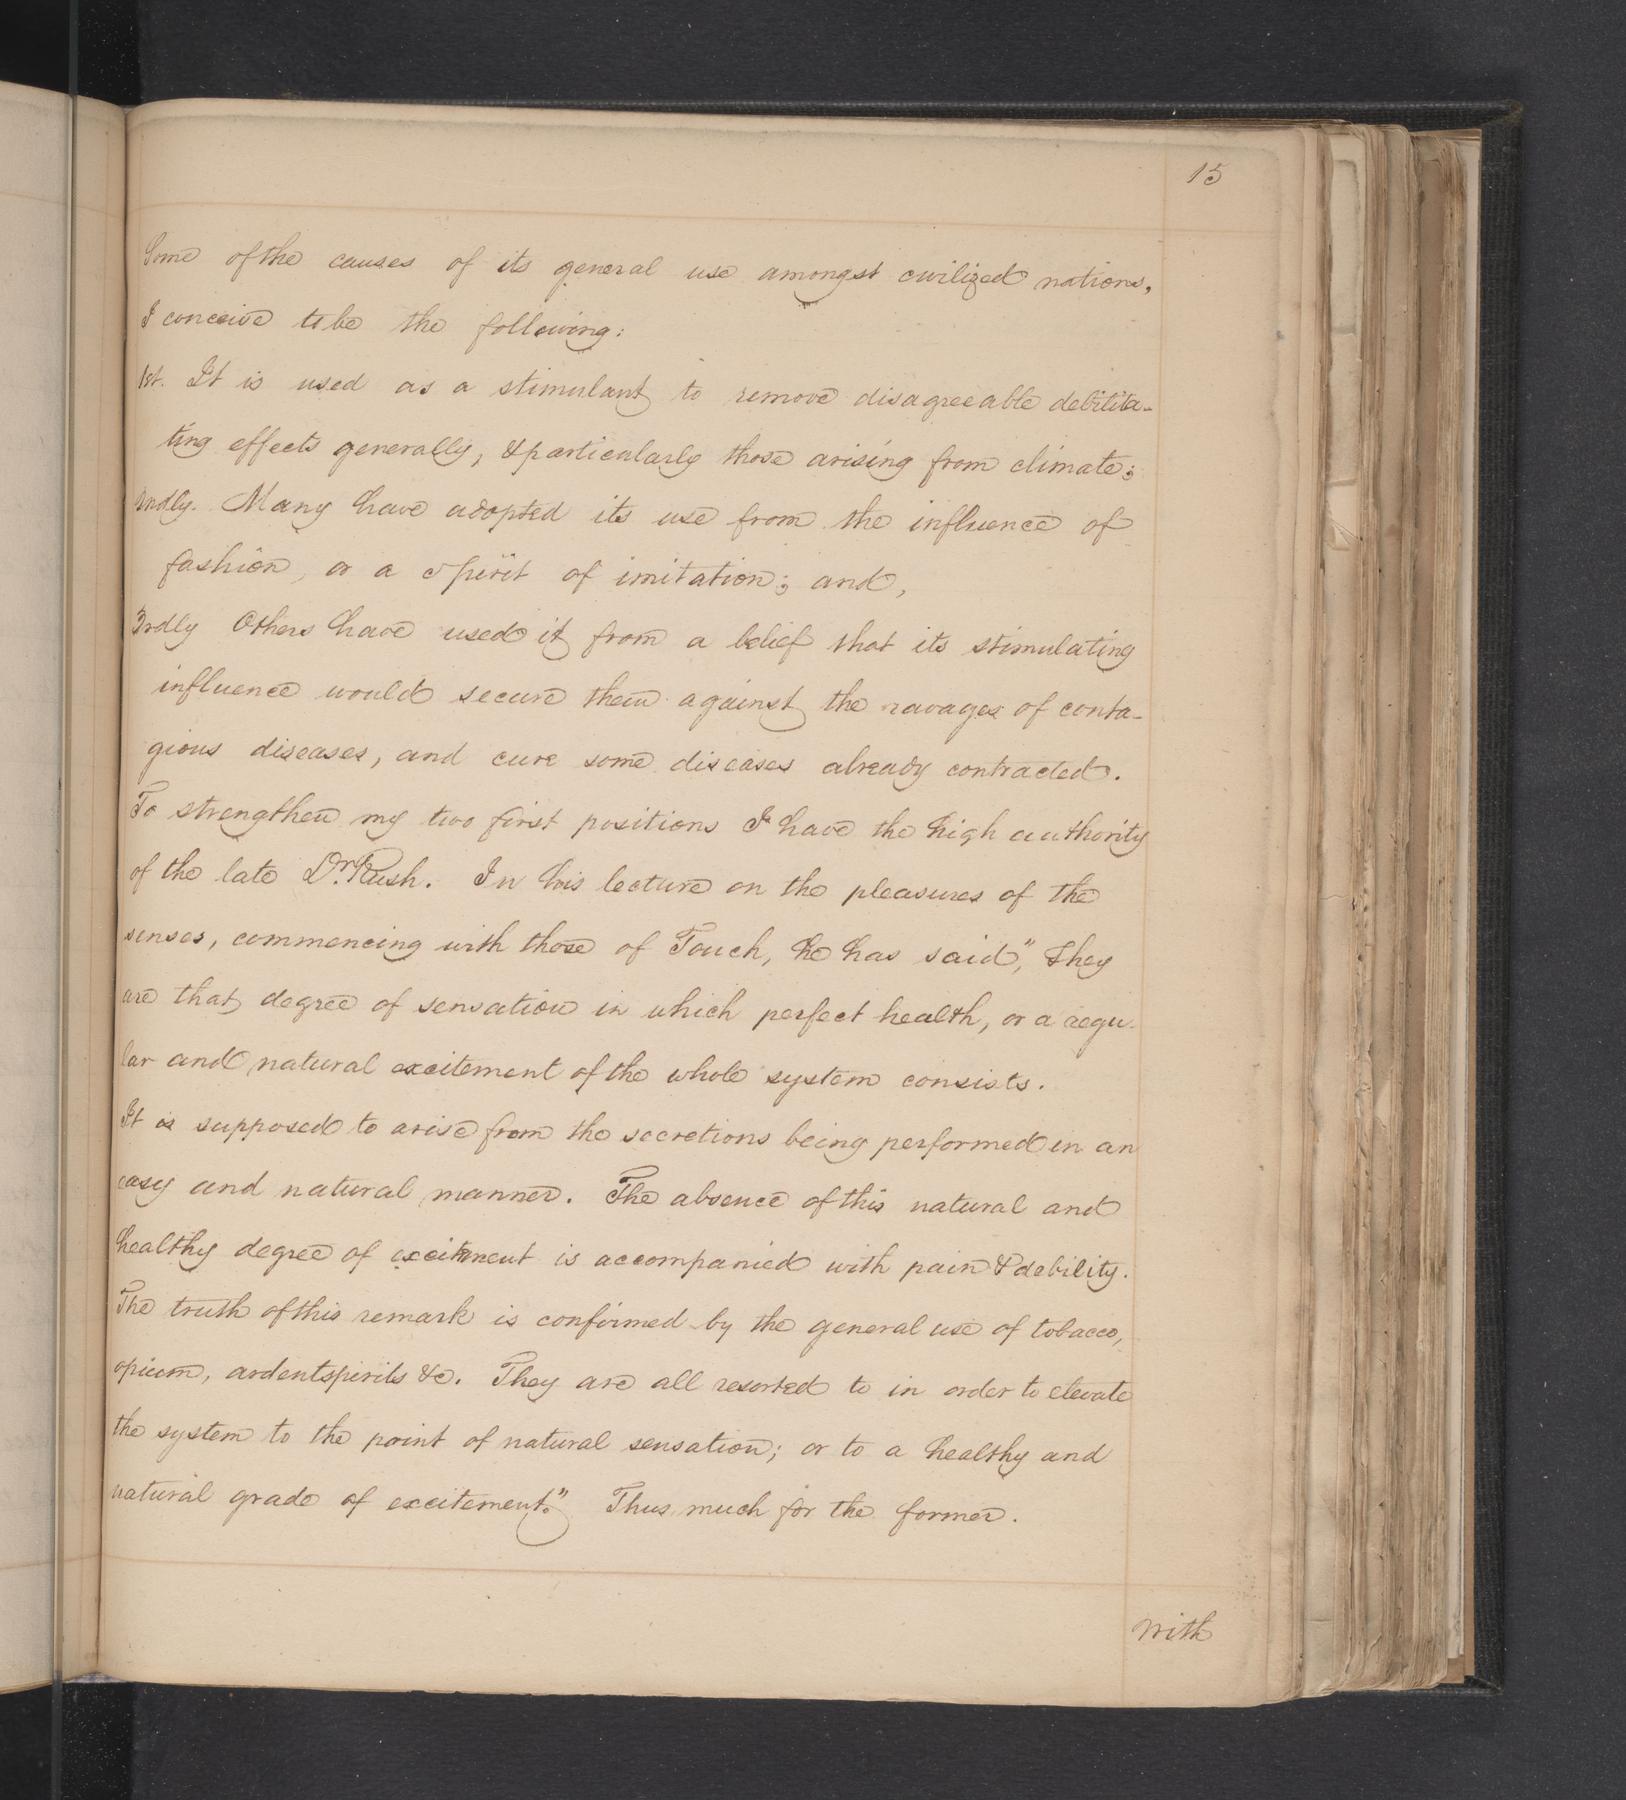 15
Some of the causes of its general use amongst civilized nations,
I conceive to be the following:
1st. It is used as a stimulant to remove disagreeable debilita-
ting effects generally, & particularly those arising from climate;
2ndly. Many have adopted its use from the influence of
fashion, or a spirit of imitation; and,
3rdly Others have used it from a belief that its stimulating
influence would secure them against the ravages of conta-
gious diseases, and cure some diseases already contracted.
To strengthen my two first positions I have the high authority
of the late Dr. Rush. In his lecture on the pleasures of the
senses, commencing with those of Touch, he has said, "They
are that degree of sensation in which perfect health, or a regu-
lar and natural excitement of the whole system consists.
It is supposed to arise from the secretions being performed in an
easy and natural manner. The absence of this natural and
healthy degree of excitement is accompanied with pain & debility.
The truth of this remark is confirmed by the general use of tobacco,
opium, ardent spirits &c. They are all resorted to in order to elevate
the system to the point of natural sensation; or to a healthy and
natural grade of excitement." Thus much for the former.
With